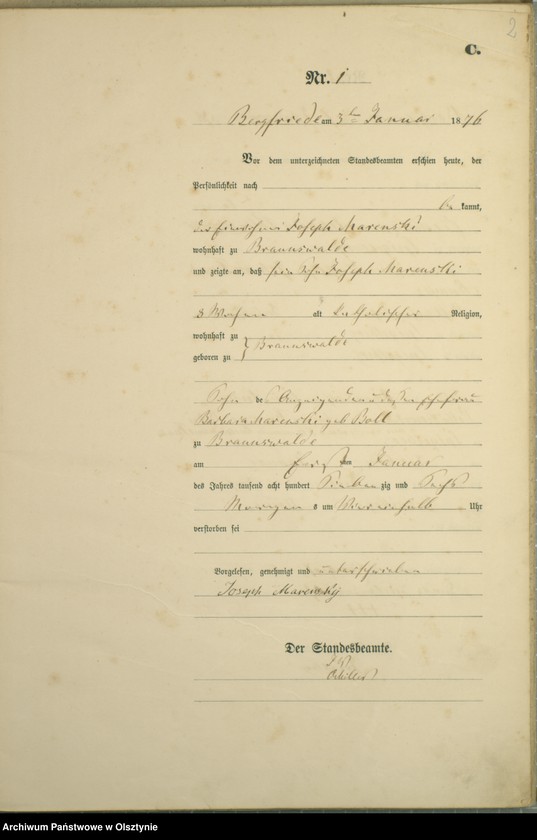 2
C.
Nr. 1
Bergfriede am 3ten Januar 1876
Vor dem unterzeichneten Standesbeamten erschien heute, der
Persönlichkeit nach
be kannt,
Joseph Marenski
wohnhaft zu Braunswalde
und zeigte an, daß sein Sohn Joseph Marenski
3 Wochen alt katholischer Religion,
wohnhaft zu
Braunswalde
geboren zu
Sohn des Anzeigenden u dessen Ehefrau
Barbara Marenski geb Boll
zu Braunswalde
am ersten Januar
des Jahres tausend acht hundert Sieben zig und Sechs
Morgens um Uhr
verstorben sei
Vorgelesen, genehmigt und unterschrieben
Joseph Marensky
Der Standesbeamte.
Archiwum Państwowe w Olsztynie